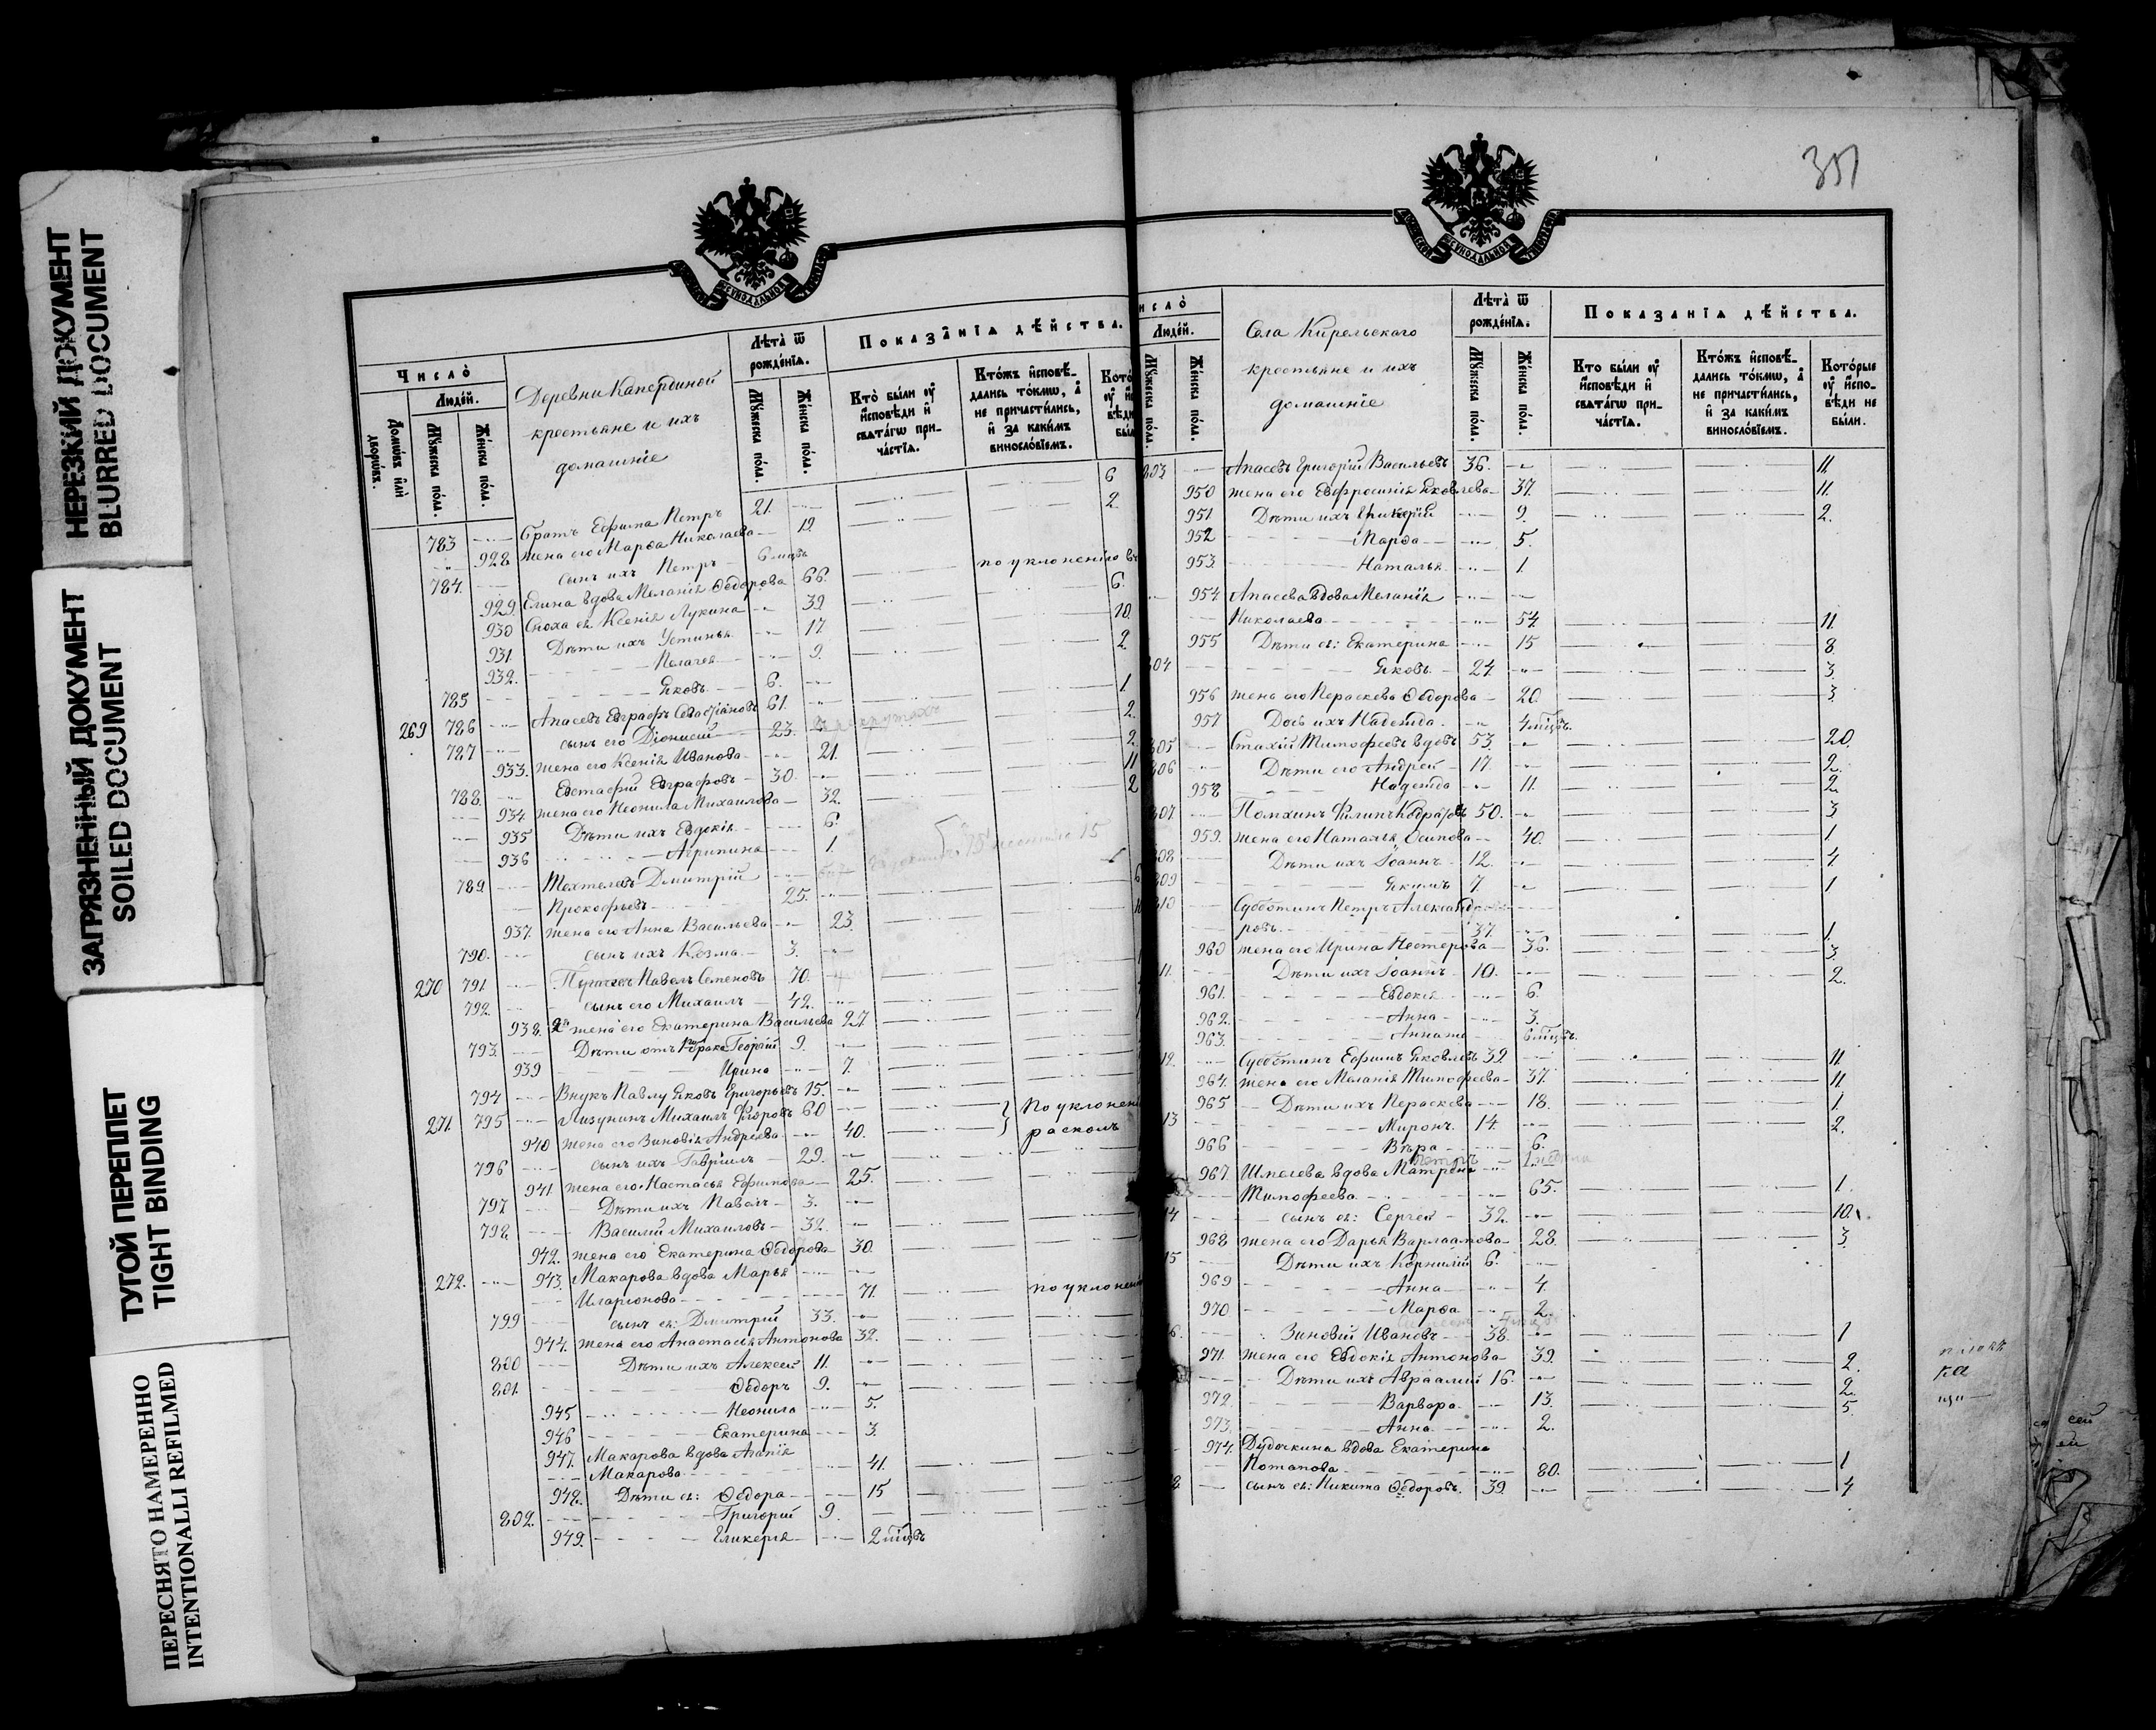 НЕРЕЗКИЙ ДОКУМЕНТ
BLURRED DOCUMENT
ЗАГРЯЗНЕННЫЙ ДОКУМЕНТ
SOILED DOCUMENT
ТУГОЙ ПЕРЕПЛЕТ
TIGHT BINDING
ПЕРЕСНЯТО НАМЕРЕННО
INTENTIONALLI REFILMED
Число̀
Людей.
Домѡвъ или дворѡвъ.
Мꙋжеска пола.
Женска пола.
Деревни
крестьяне и ихъ
домашніе
Лѣта ѿ рожденія.
Мꙋжеска пола.
Женска пола.
Показанія дѣйства.
Кто были ᲂу҆ исповѣди и свѧтагѡ причастія.
Ктожъ исповѣдались токмѡ, а не причастились, и за какимъ винословіемъ.
783 Братъ Ефима Петръ 21. 6
928 жена его Марѳа Николаева 19. 2.
784. сынъ ихъ Петръ 6 мцъ
929. Елина вдова Меланія Ѳедорова 66. по уклоненію въ
930 Сноха ея Ксенія Лукина 39 6.
931. Дѣти ихъ Устинья 17. 10.
932. Пелагея 9. 2
785 Яковъ 6.
269 786 Апасевъ Евграфъ Севастіановъ 61. 1.
787 сынъ его Діонисій 23. 2.
933. жена его Ксенія Иванова 21. 2.
788. Евстафій Евграфовъ 30. 11
934. жена его Неонила Михаилова 32. 2
935 Дѣти ихъ Евдокія 6.
936 Агрипина 1.
789. Дмитрій
Прокофьевъ 25.
937. жена его Анна Васильева 23.
790. сынъ ихъ Козма 3.
270 791 Павелъ Семеновъ 70.
792. сынъ его Михаилъ 42.
938. 2я жена его Екатерина Васильева 27.
793. Дѣти отъ 1го брака Георгій 9.
939 Ирина 7.
794 Внукъ Павлу Яковъ Григорьевъ 15.
271. 795 Лизунинъ Михаилъ 60 По уклонен
940 жена его Зиновія Андреева 40. расколъ
796 сынъ ихъ Гавріилъ 29.
941. жена его Настасья Ефимова 25.
797 Дѣти ихъ Павелъ 3.
798. Василій Михаиловъ 32.
942. жена его Екатерина Ѳедорова 30.
272. 943. Макарова вдова Марья
Иларіонова 71. по уклонен
799 сынъ ея: Дмитрій 33.
944. жена его Анастасья Антонова 32.
800 Дѣти ихъ Алексей 11.
801. Ѳедоръ 9.
945 Неонила 5.
946 Екатерина 3.
947. Макарова вдова Агапія
Макарова 41.
948. Дѣти ея: Ѳедора 15
802. Григорій 9.
949. Гликерія 2 мцъ
351
Людей.
Мꙋжеска пола.
Женска пола.
Села Кирельскаго
крестьяне и ихъ
домашніе
Лѣта ѿ рожденія.
Мꙋжеска пола.
Женска пола.
Показанія дѣйства.
Кто были ᲂу҆ исповѣди и свѧтагѡ причастія.
Ктожъ исповѣдались токмѡ, а не причастились, и за какимъ винословіемъ.
Которые ᲂу҆ исповѣди не были.
803 Апасевъ Григорій Васильевъ 36. 11.
950 жена его Евфросинія Яковлева 37. 11.
951 Дѣти ихъ 9. 2.
952 Марѳа 5.
953. Наталья 1.
954 Апасева вдова Меланія
Николаева 54. 11.
955 Дѣти ея: Екатерина 15 8.
804 Яковъ 24. 3.
956 жена его Пераскева Ѳедорова 20 3.
957 Дочь ихъ Надежда 4 мцъ.
805 Стахій Тимофеевъ вдовъ 53. 20.
806 Дѣти его Андрей 17 2.
958 Надежда 11. 2.
807. Филипъ 50. 3
959. жена его Наталья Осипова 40. 1.
808 Дѣти ихъ Іоаннъ 12. 4
809 Якимъ 7. 1
810 Субботинъ Петръ Александ
ровъ 37.
960 жена его Ирина Нестерова 36. 1.
11. Дѣти ихъ Іоаннъ 10. 3.
961. Евдокія 6. 2.
962. Анна 3.
963. 6 мцъ.
12. Субботинъ Ефимъ Яковлевъ 39. 11.
964. жена его Меланія Тимофеева 37. 11.
965 Дѣти ихъ Пераскева 18. 1.
13 Миронъ 14. 2.
966 Вѣра 6.
967. Шмелева вдова Матрена
Тимофеева 65. 1.
14 сынъ ея: Сергей 32. 10.
968 жена его Дарья Варлаамова 28. 3.
15 Дѣти ихъ Корнилій 6.
969 Анна 4.
970 Марѳа 2.
16. Зиновій Ивановъ 38. 1
971. жена его Евдокія Антонова 39. 2.
Дѣти ихъ Авраамій 16. 2.
972. Варвара 13. 5.
973. Анна 2.
974. Дудочкина вдова Екатерина
Потапова 80. 1
8 сынъ ея: Никита Ѳедоровъ 39. 4